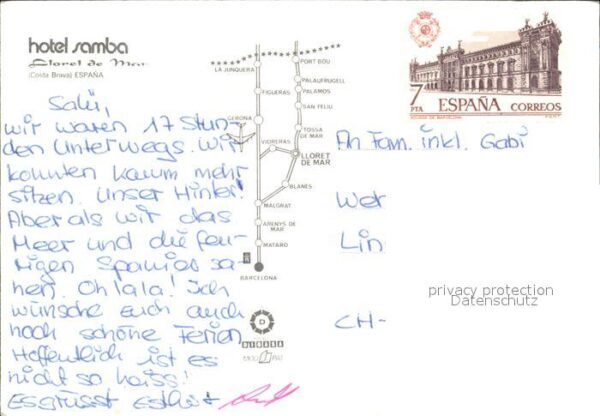 hotel samba
Lloret de Mar
(Costa Brava) ESPAÑA
Salü,
wir waren 17 Stun-
den Unterwegs. Wir
konnten kaum mehr
sitzen. Unser Hinter!
Aber als wir das
Meer und die feu-
rigen Spanier sa-
hen. Oh lala! Ich
wünsche Euch auch
noch schöne Ferien
Hoffentlich ist es
nicht so heiss!
Es grüsst Esther
LA JUNQUERA
PORT-BOU
PALAFRUGELL
FIGUERAS
PALAMOS
SAN FELIU
GERONA
TOSSA
DE MAR
VIDRERAS
LLORET
DE MAR
BLANES
MALGRAT
ARENYS DE
MAR
MATARO
BARCELONA
D
7
PTA
ADUANA DE BARCELONA
ESPAÑA
CORREOS
F.N.M.T.
An Fam. inkl. Gabi
Wer
Lin
CH-
privacy protection
Datenschutz